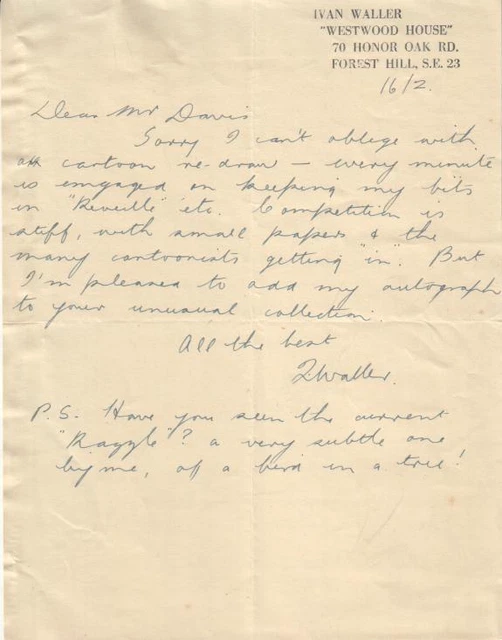 IVAN WALLER
"WESTWOOD HOUSE"
70 HONOR OAK RD.
FOREST HILL, S.E. 23
16/2.
Dear Mr Davis
Sorry I can't oblige with
cartoon re-draw – every minute
is engaged on keeping my bits
in "Reveille" etc. Competition is
stiff, with small papers & the
many cartoonists getting "in". But
I'm pleased to add my autograph
to your unusual collection.
All the best
I Waller.
P.S. Have you seen the current
"Razzle"? a very subtle one
by me, of a bird in a tree!